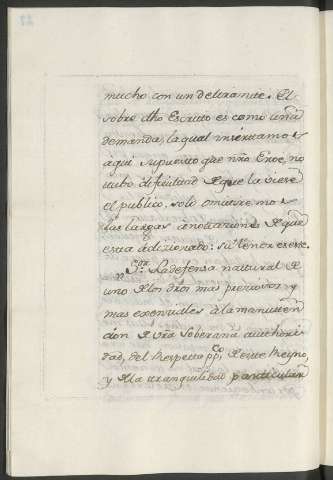 mucho con un delirante. El
sobre dho Escrito es como una
demanda, la qual insertamos
aqui supuesto que nro Eroe, no
tubo dificultad de que la viese
el publico. solo omitiremos
las largas anotaciones de que
esta adicionado: su tenor es este.
Sor. La defensa natural de
uno de los dros mas preciosos, y
mas esenciales à la manuten
cion de vra Soberana authori
dad, del Respecto ppco, de este Reyno,
y de la tranquilidad particular